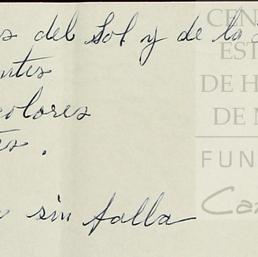 del Sol y de la
colores
sin falla
CEN
EST
DE H
DE
FUN
Ca